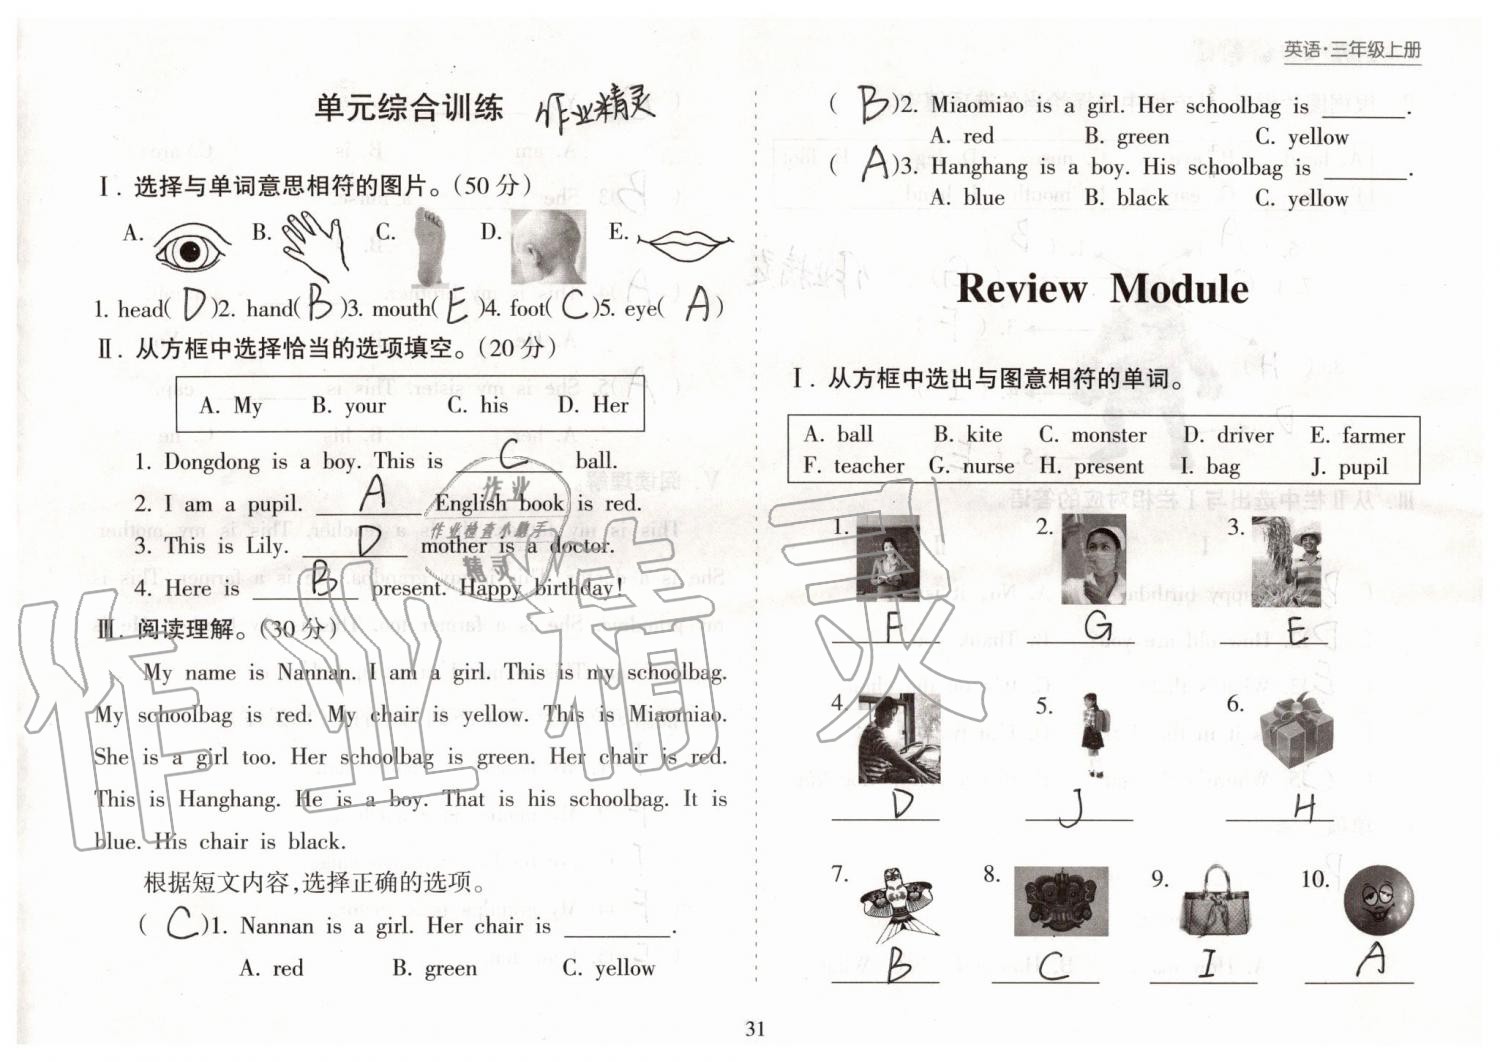 英语·三年级上册
单元综合训练 作业精灵
Ⅰ. 选择与单词意思相符的图片。(50分)
A. B. C. D. E.
1. head( D )2. hand( B )3. mouth( E )4. foot( C )5. eye( A )
Ⅱ. 从方框中选择恰当的选项填空。(20分)
A. My B. your C. his D. Her
1. Dongdong is a boy. This is C ball.
2. I am a pupil. A English book is red.
3. This is Lily. D mother is a doctor.
4. Here is B present. Happy birthday!
作业
作业检查小助手
精灵
Ⅲ. 阅读理解。(30分)
My name is Nannan. I am a girl. This is my schoolbag.
My schoolbag is red. My chair is yellow. This is Miaomiao.
She is a girl too. Her schoolbag is green. Her chair is red.
This is Hanghang. He is a boy. That is his schoolbag. It is
blue. His chair is black.
根据短文内容,选择正确的选项。
( C )1. Nannan is a girl. Her chair is ________.
A. red B. green C. yellow
( B )2. Miaomiao is a girl. Her schoolbag is ________.
A. red B. green C. yellow
( A )3. Hanghang is a boy. His schoolbag is ________.
A. blue B. black C. yellow
Review Module
Ⅰ. 从方框中选出与图意相符的单词。
A. ball B. kite C. monster D. driver E. farmer
F. teacher G. nurse H. present I. bag J. pupil
1. 2. 3.
F G E
4. 5. 6.
D J H
7. 8. 9. 10.
B C I A
31
作业精灵